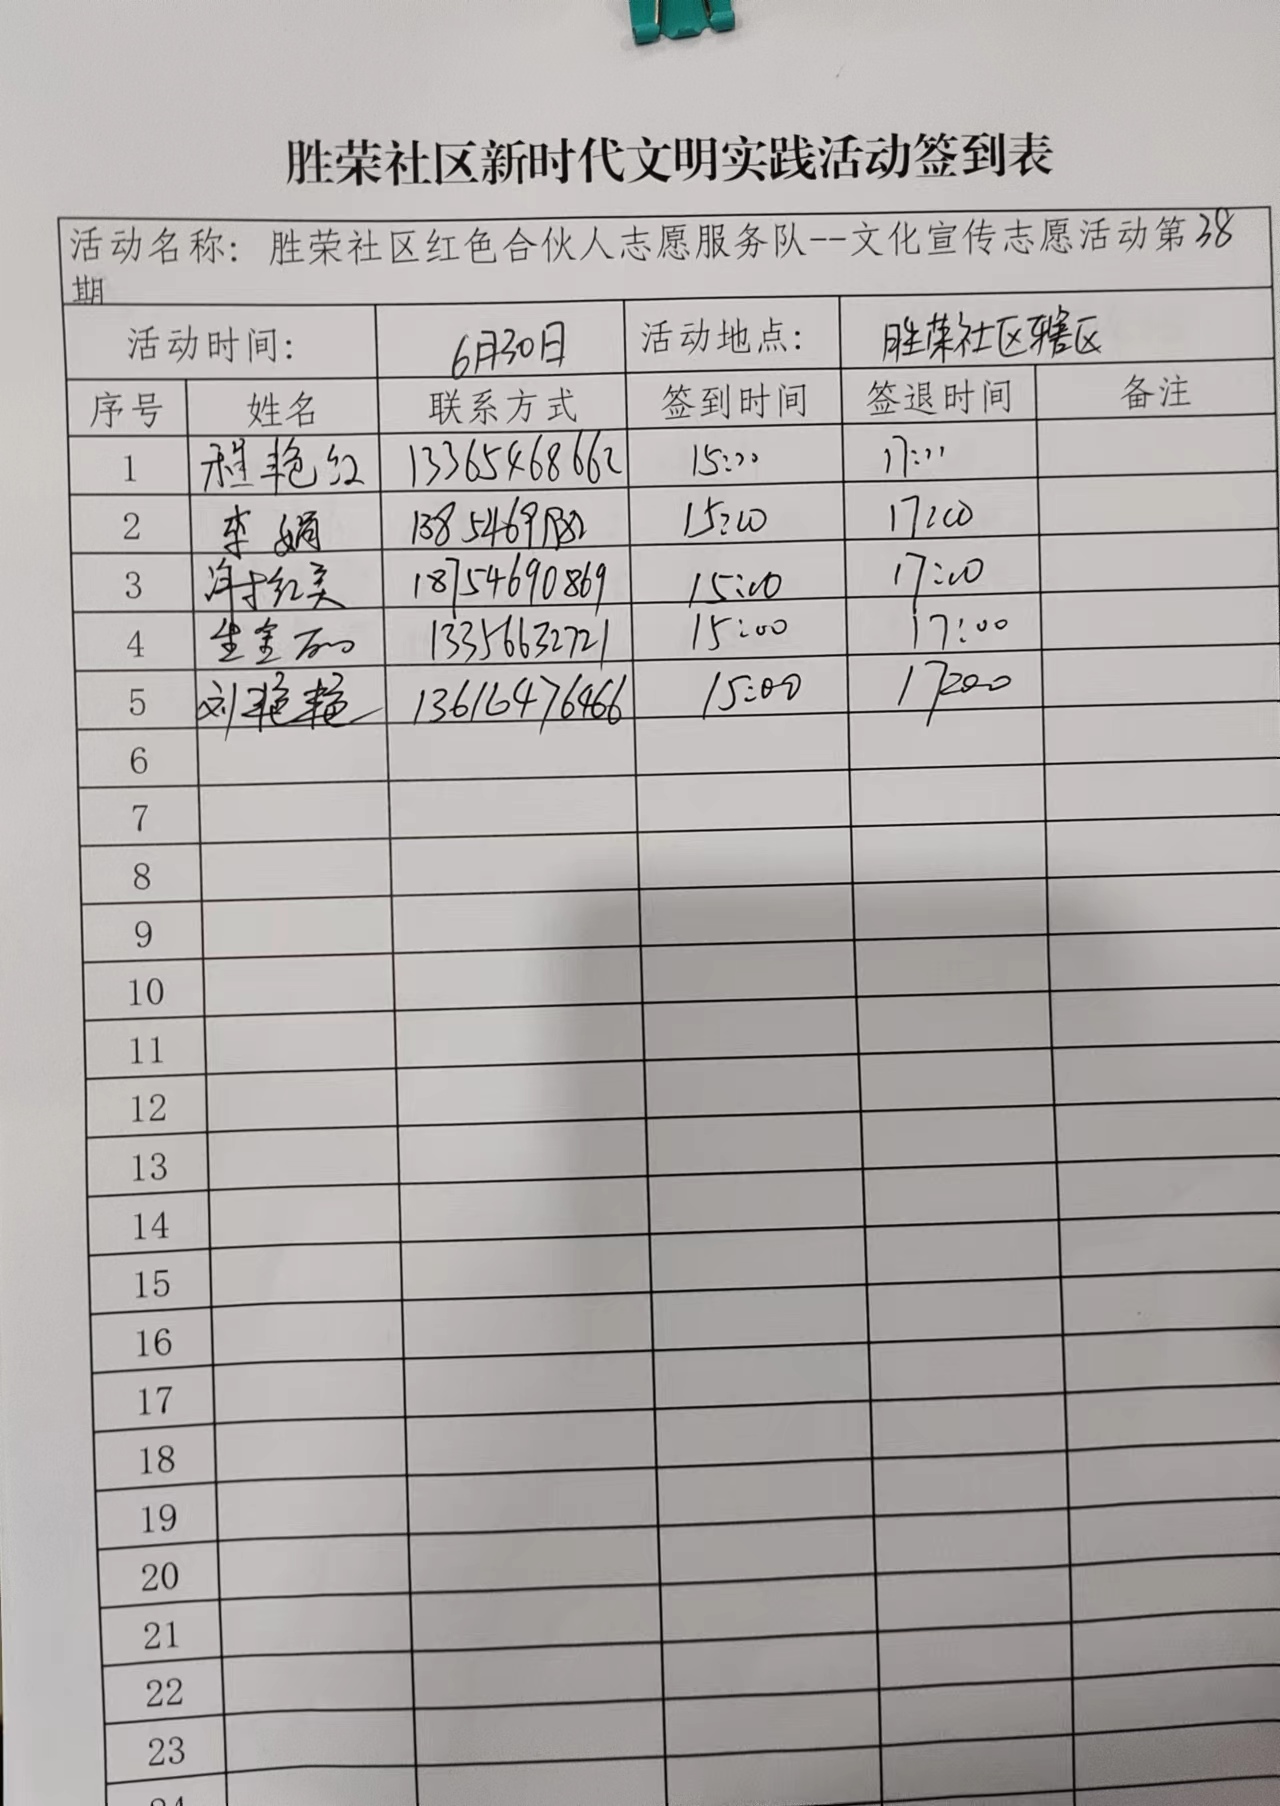 胜荣社区新时代文明实践活动签到表
活动名称：胜荣社区红色合伙人志愿服务队--文化宣传志愿活动第38
期
活动时间： 6月30日 活动地点： 胜荣社区辖区
序号 姓名 联系方式 签到时间 签退时间 备注
1 程艳红 13365468662 15:00 17:00
2 李娟 15:00 17:00
3 红美 18754690869 15:00 17:00
4 13356632721 15:00 17:00
5 刘艳艳 13616476466 15:00 17:00
6
7
8
9
10
11
12
13
14
15
16
17
18
19
20
21
22
23
24